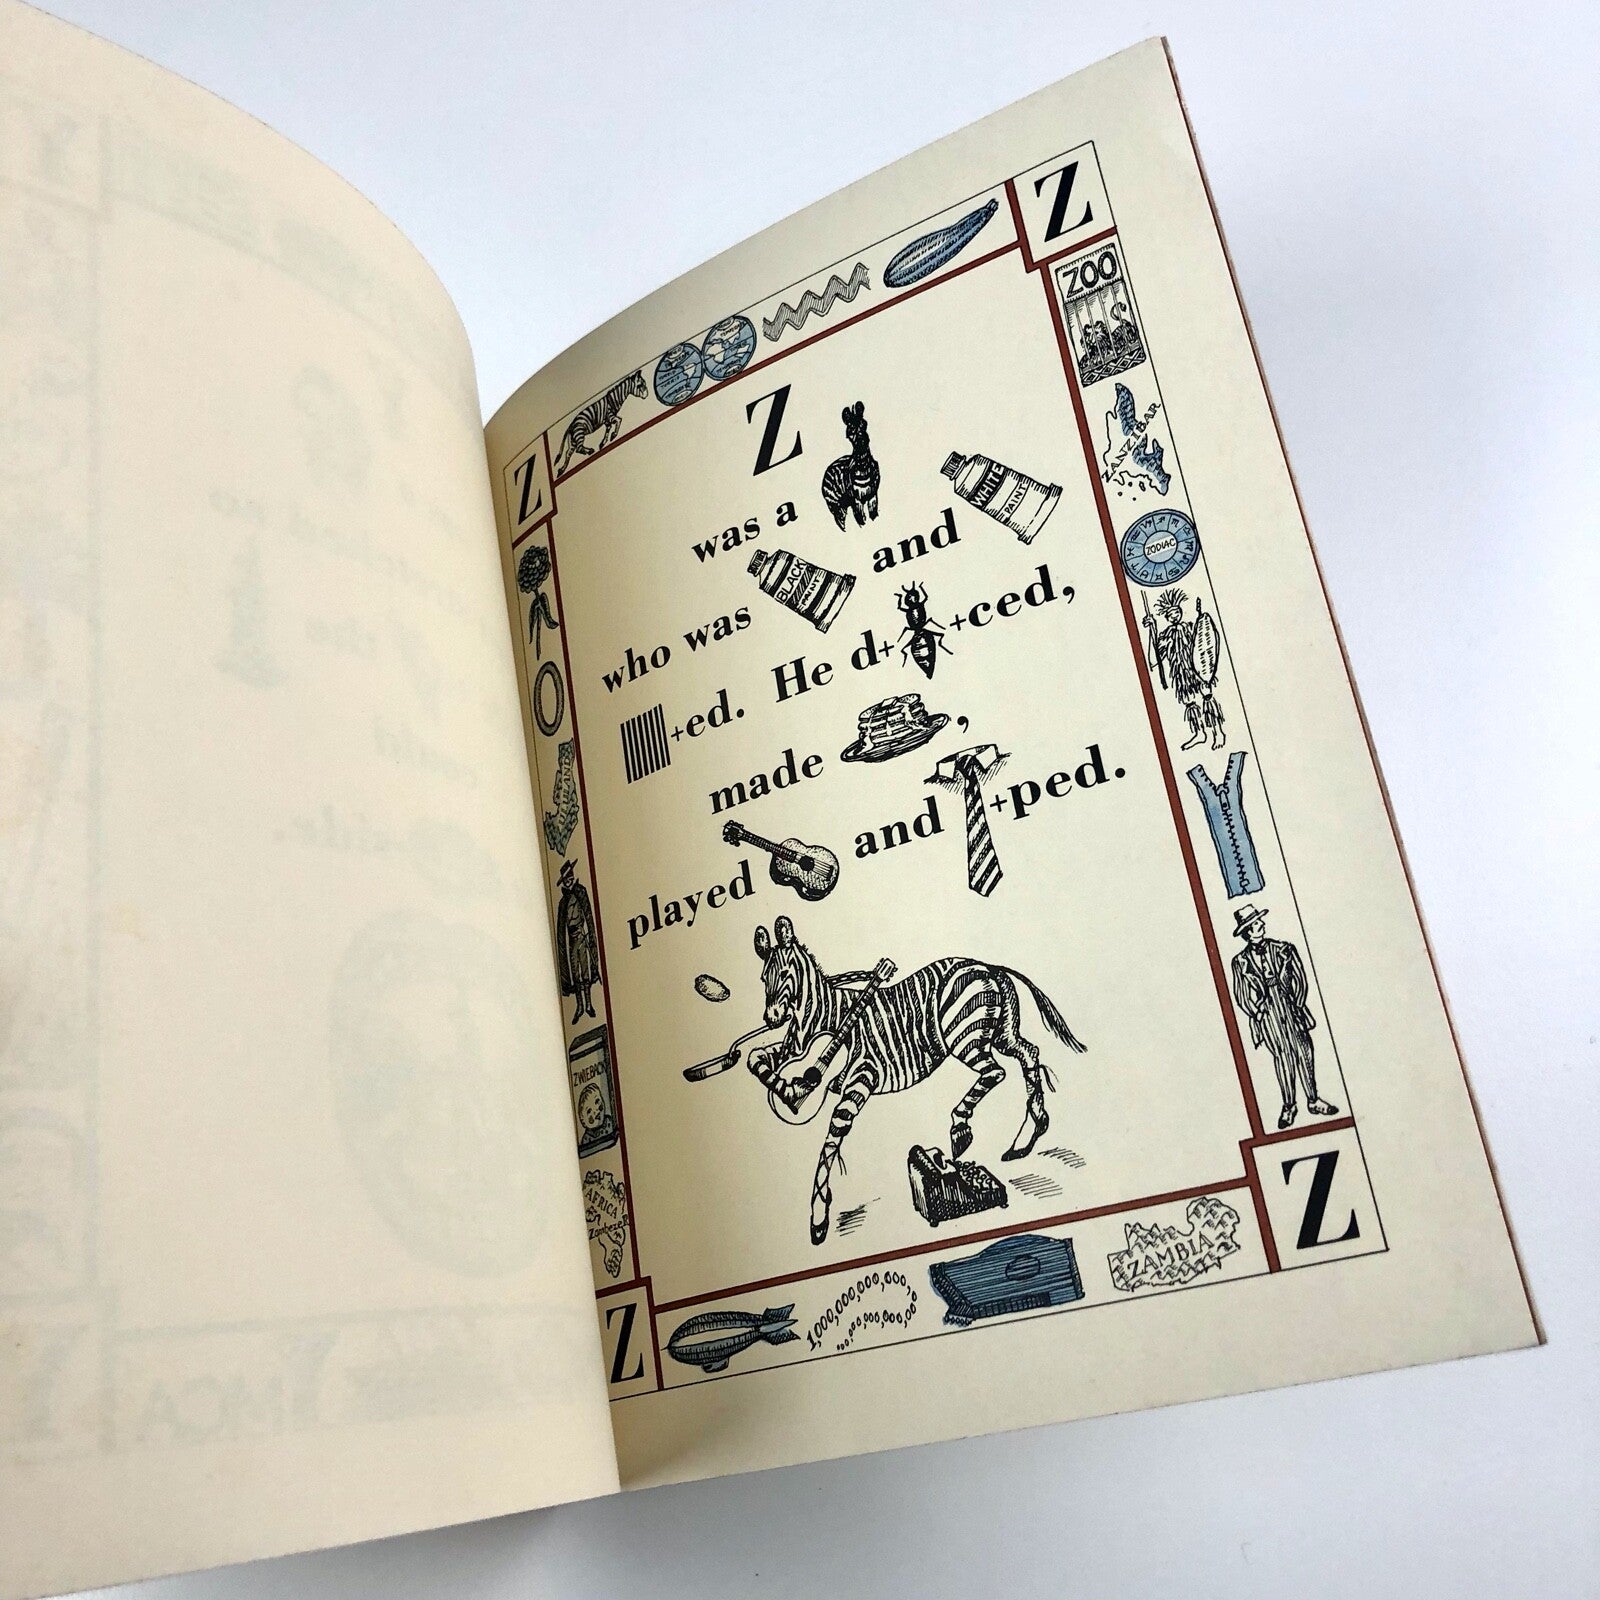 Z
was a
BLACK PAINT and WHITE PAINT
who was
+ed. He d+ +ced,
made ,
played and +ped.
Z
Z
Z
Z
ZOO
ZANZIBAR
ZODIAC
ZULULAND
ZWIEBACK
AFRICA
1,000,000,000,000,
ZAMBIA